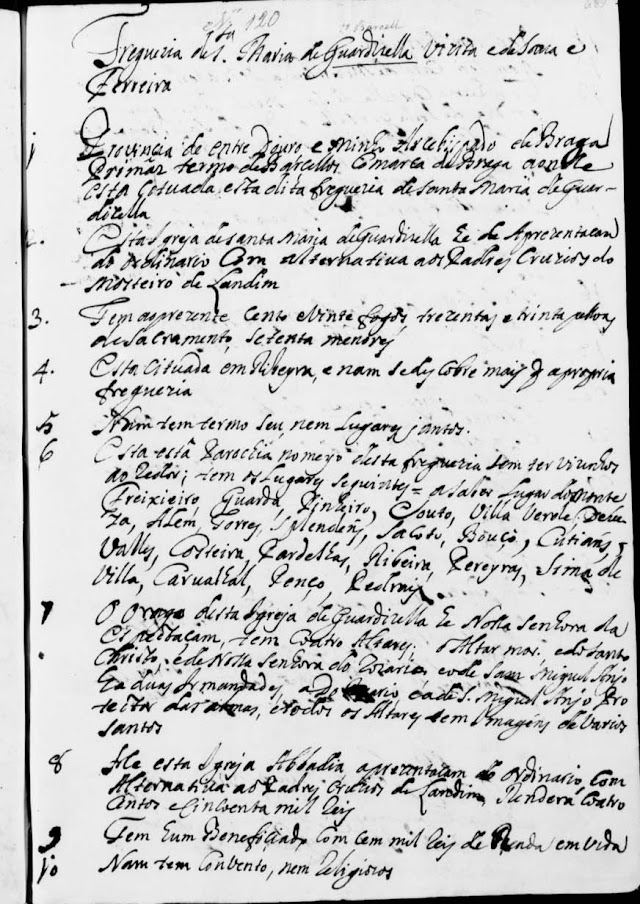 Nº 120
Freguezia de S.ta Maria de Guardizella Vizita e de Souza e
Ferreira
1 Provincia de entre Douro e minho Arcebispado de Braga
Primaz termo de Barcellos Comarca de Braga aonde
esta cotuada esta dita freguezia de santa Maria de Guar-
dizella
2. Esta Igreja de santa Maria de Guardizella he de Aprezentacam
do ordinario Com alternativa aos Padres Cruzios do
Mosteiro de Landim
3. Tem ao prezente Cento e Vinte fogos trezentas e trinta pessoas
de Sacramento, setenta menores
4. Esta cituada em Ribeyra, e nam se des cobre mais q a propria
freguezia
5 Nam tem termo seu, nem Lugares santos.
6 Esta está Parochia no meyo desta freguezia sem ter vizinhos
ao redor; tem os Lugares seguintes = a saber Lugar do monte
Freixieiro, Guarda, Pinheiro, Souto, Villa Verde,
Alem, Torres, Sacoto, Bouço, Cutians,
Valles, Costeira, Pardelhas, Ribeira, Pereyras, Sima de
Villa, Carvalhal, Penço, Pedraix.
7 O Orago desta Igreja de Guardizella he Nossa Senhora da
Expectaçam, tem Coatro Altares; o Altar mor, e do santo
Christo, e de Nossa Senhora do Rozario, e o de Sam Miguel Anjo
ha duas Irmandades, a e a de S. Miguel Anjo Pro
tector das almas, e todos os Altares tem Imagens de varios
santos
8 He esta Igreja Abbadia aprezentacam do ordinario, com
Alternativa ao Padres Cruzios de Landim, Renderá Coatro
Centos e Sincoenta mil Reis
9 Tem hum Beneficiado Com cem mil Reis de Renda em vida
10 Nam tem Convento, nem Religiozos